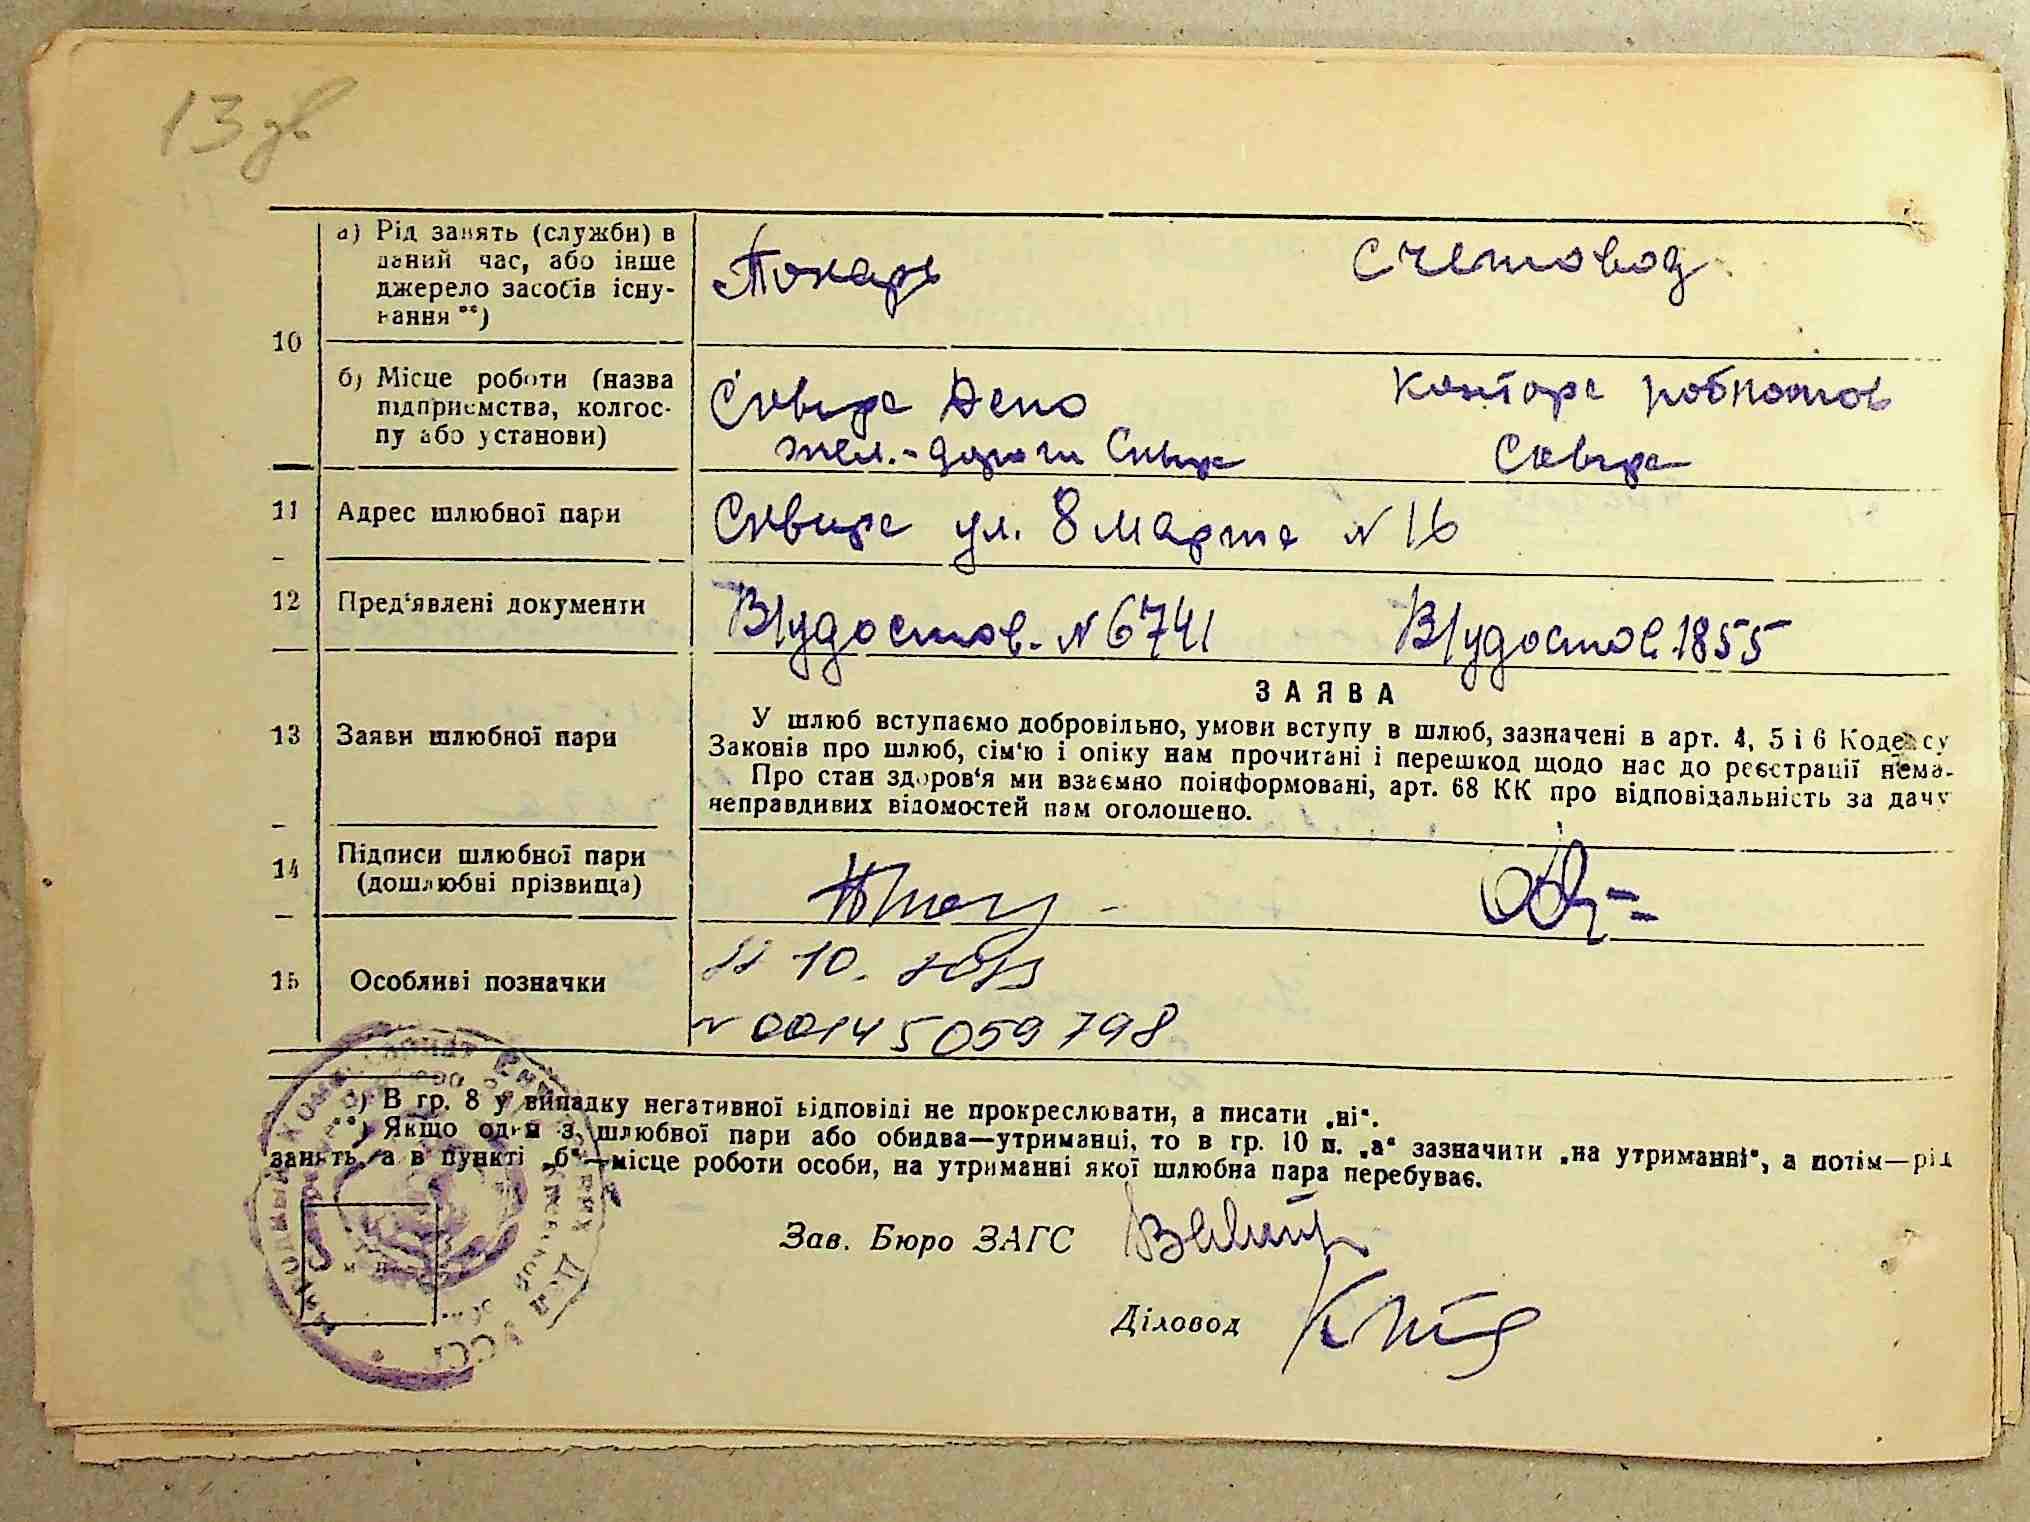 13 зв
а) Рід занять (служби) в
даний час, або інше
джерело засобів існу-
вання **)
Токарь
Счетовод
10
б) Місце роботи (назва
підприємства, колгос-
пу або установи)
Сквира Депо
жел.-дороги Сквира
Контора
Сквира
11
Адрес шлюбної пари
Сквира ул. 8 марта N 16
12
Пред'явлені документи
В/удостов. N 6741
В/удостов. 1855
13
Заяви шлюбної пари
ЗАЯВА
У шлюб вступаємо добровільно, умови вступу в шлюб, зазначені в арт. 4, 5 і 6 Кодексу
Законів про шлюб, сім'ю і опіку нам прочитані і перешкод щодо нас до реєстрації нема.
Про стан здоров'я ми взаємно поінформовані, арт. 68 КК про відповідальність за дачу
неправдивих відомостей нам оголошено.
14
Підписи шлюбної пари
(дошлюбні прізвища)
15
Особливі позначки
10.
N 00145059798
*) В гр. 8 у випадку негативної відповіді не прокреслювати, а писати „ні“.
**) Якщо один з шлюбної пари або обидва—утриманці, то в гр. 10 п. „а“ зазначити „на утриманні“, а потім—рід
занять, а в пункті „б“—місце роботи особи, на утриманні якої шлюбна пара перебуває.
Зав. Бюро ЗАГС
Діловод
м. п.